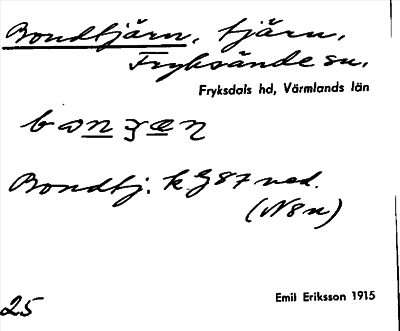 Bondtjärn, tjärn,
Fryksände sn,
Fryksdals hd, Värmlands län
Bondtj. k G 87 ned.
(N8n)
25
Emil Eriksson 1915